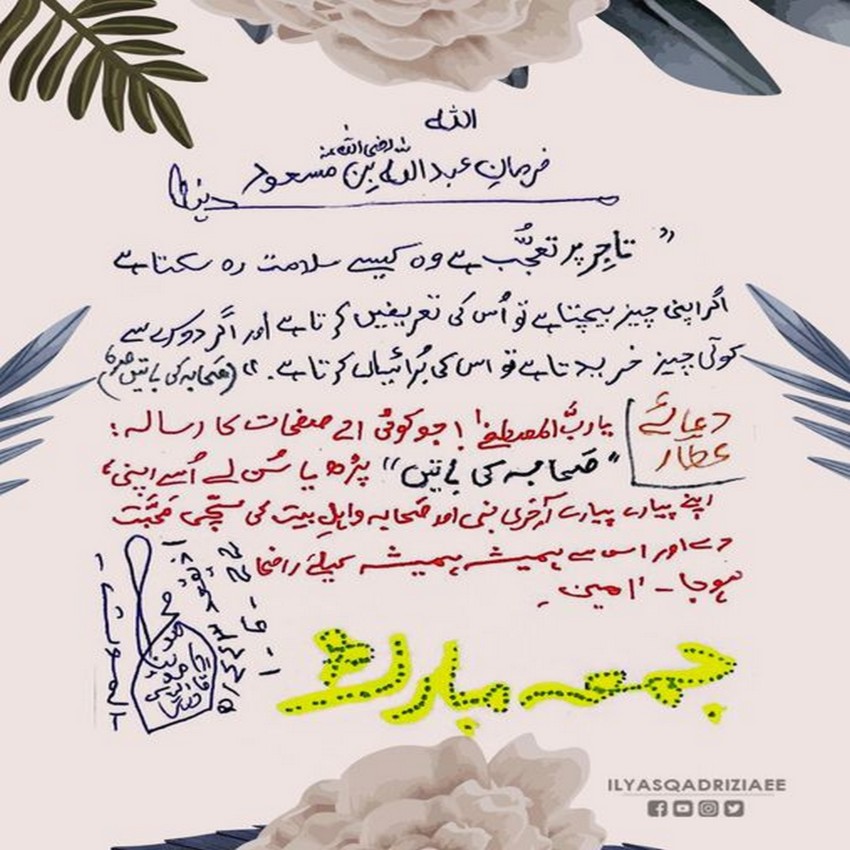 اللہ
فرمانِ عبد اللہ بن مسعود رضی اللہ عنہ
"تاجِر پر تعجُّب ہے وہ کیسے سلامت رہ سکتا ہے
اگر اپنی چیز بیچتا ہے تو اُس کی تعریفیں کرتا ہے اور اگر دوسرے سے
کوئی چیز خریدتا ہے تو اس کی بُرائیاں کرتا ہے۔" (صحابہ کی باتیں ص
دعائے عطار
یاربَّ المصطفےٰ! جو کوئی صفحات کا رسالہ:
"صَحابہ کی باتیں" پڑھ یا سُن لے اُسے اپنی،
اپنے پیارے پیارے آخری نبی اور صَحابہ واہلِ بیت کی سچّی مَحَبَّت
دے اور اس سے ہمیشہ ہمیشہ کیلئے راضی
ہوجا - امین۔
جمعہ مبارک
ILYASQADRIZIAEE